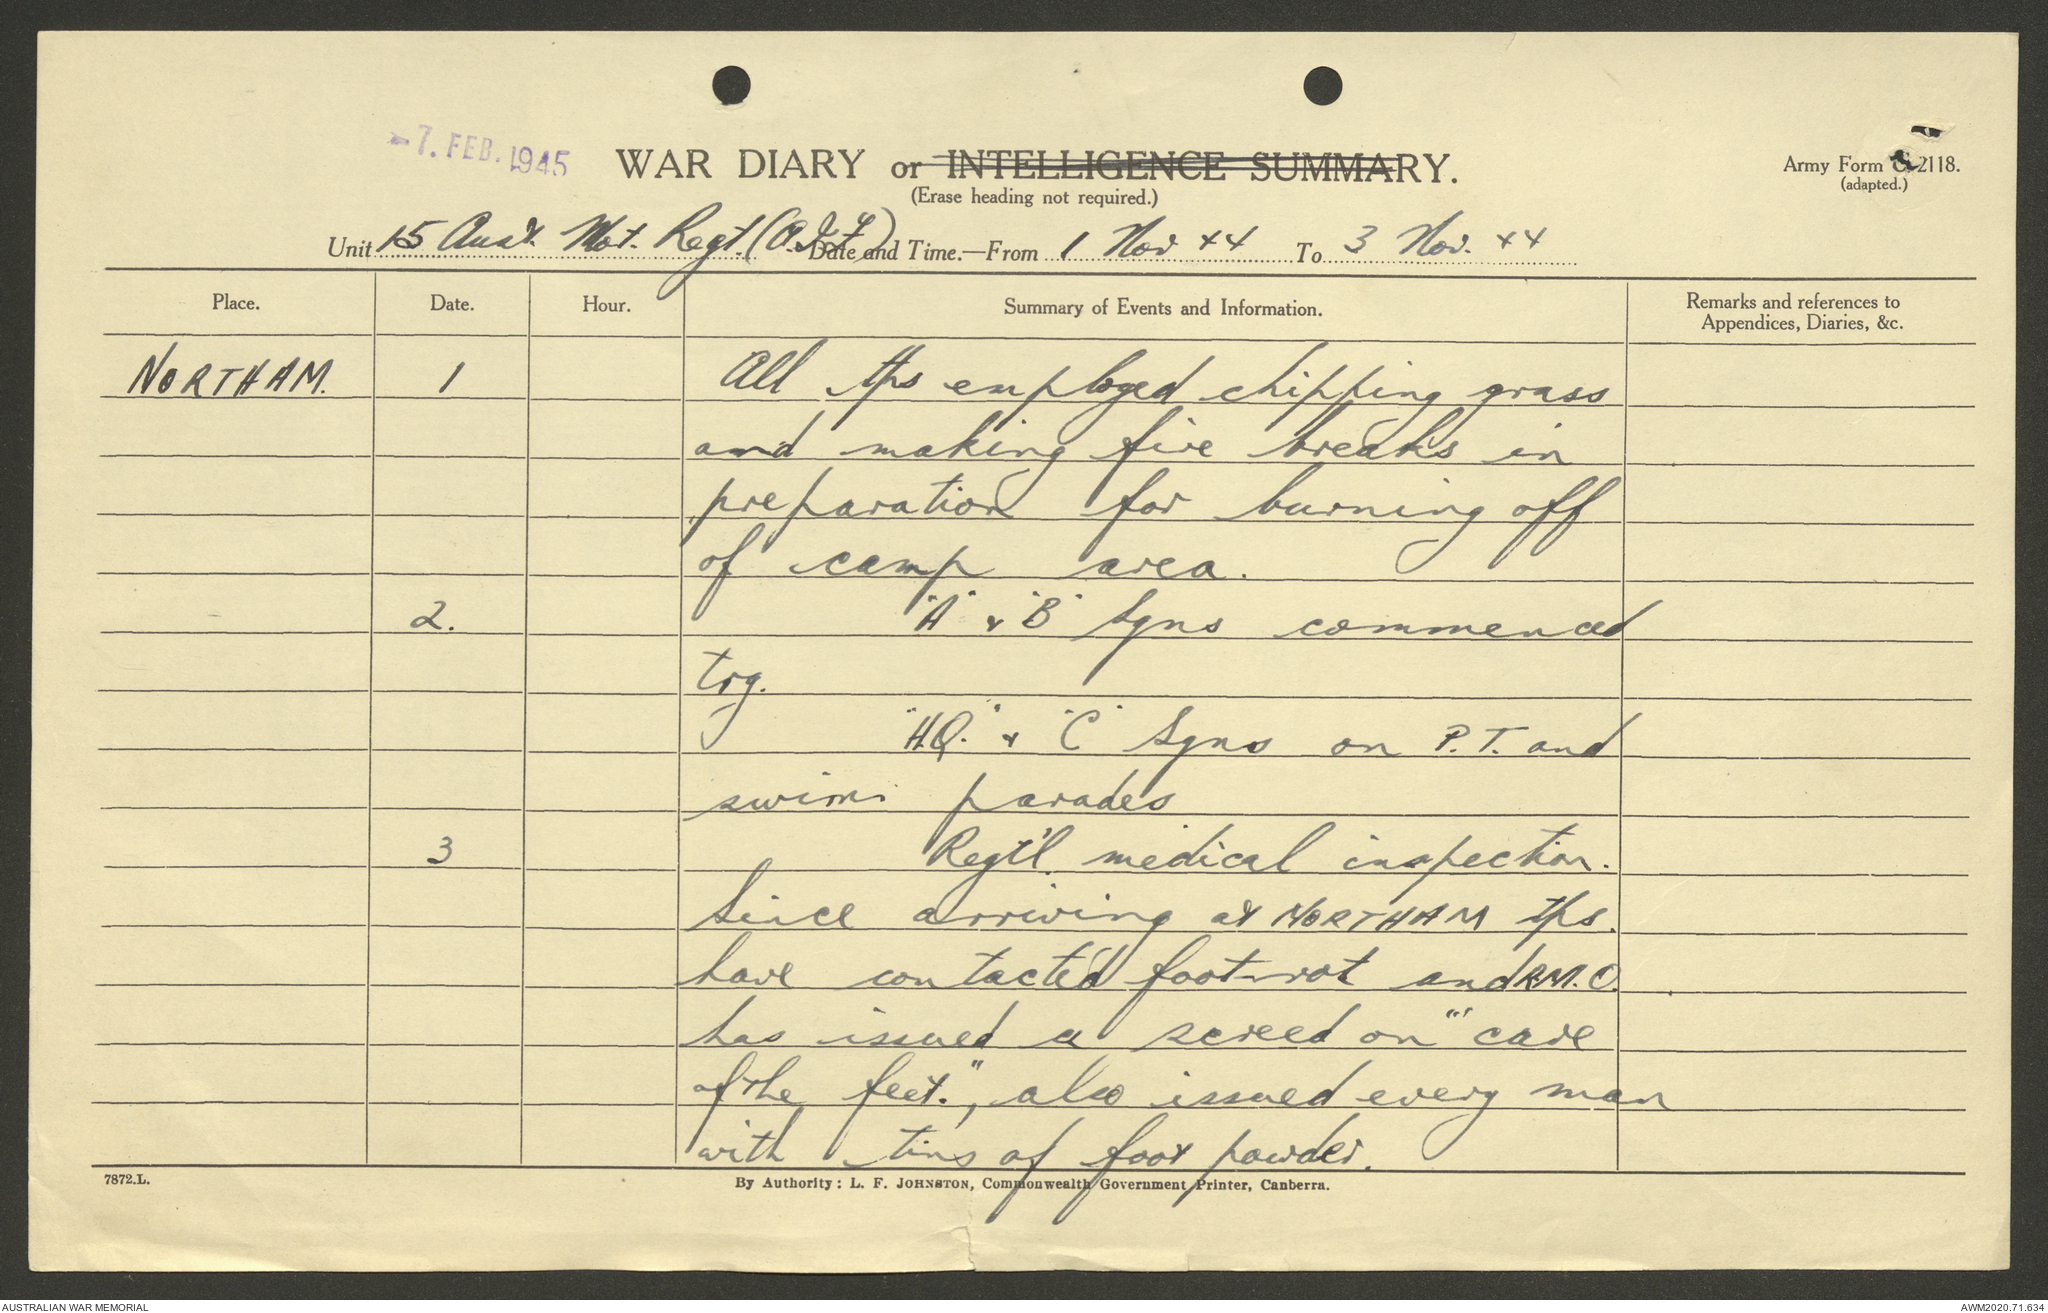 -7. FEB. 1945
WAR DIARY or INTELLIGENCE SUMMARY.
(Erase heading not required.)
Army Form C. 2118.
(adapted.)
Unit 15 Aust. Mot. Regt. (A.I.F.) Date and Time.—From 1 Nov 44 To 3 Nov. 44
Place. Date. Hour. Summary of Events and Information. Remarks and references to
Appendices, Diaries, &c.
NORTHAM. 1 All tps employed chipping grass
and making fire breaks in
preparation for burning off
of camp area.
2. "A" & "B" Sqns commenced
trg.
"H.Q." & "C" Sqns on P.T. and
swim parades
3 Regt'l. medical inspection.
Since arriving at NORTHAM tps.
have contacted foot-rot and R.M.O.
has issued a screed on "care
of the feet.", also issued every man
with tins of foot powder.
7872.L.
By Authority: L. F. JOHNSTON, Commonwealth Government Printer, Canberra.
AUSTRALIAN WAR MEMORIAL
AWM2020.71.634